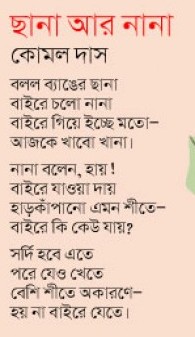 ছানা আর নানা
কোমল দাস
বলল ব্যাঙের ছানা
বাইরে চলো নানা
বাইরে গিয়ে ইচ্ছে মতো–
আজকে খাবো খানা।
নানা বলেন, হায়!
বাইরে যাওয়া দায়
হাড়কাঁপানো এমন শীতে–
বাইরে কি কেউ যায়?
সর্দি হবে এতে
পরে যেও খেতে
বেশি শীতে অকারণে–
হয় না বাইরে যেতে।